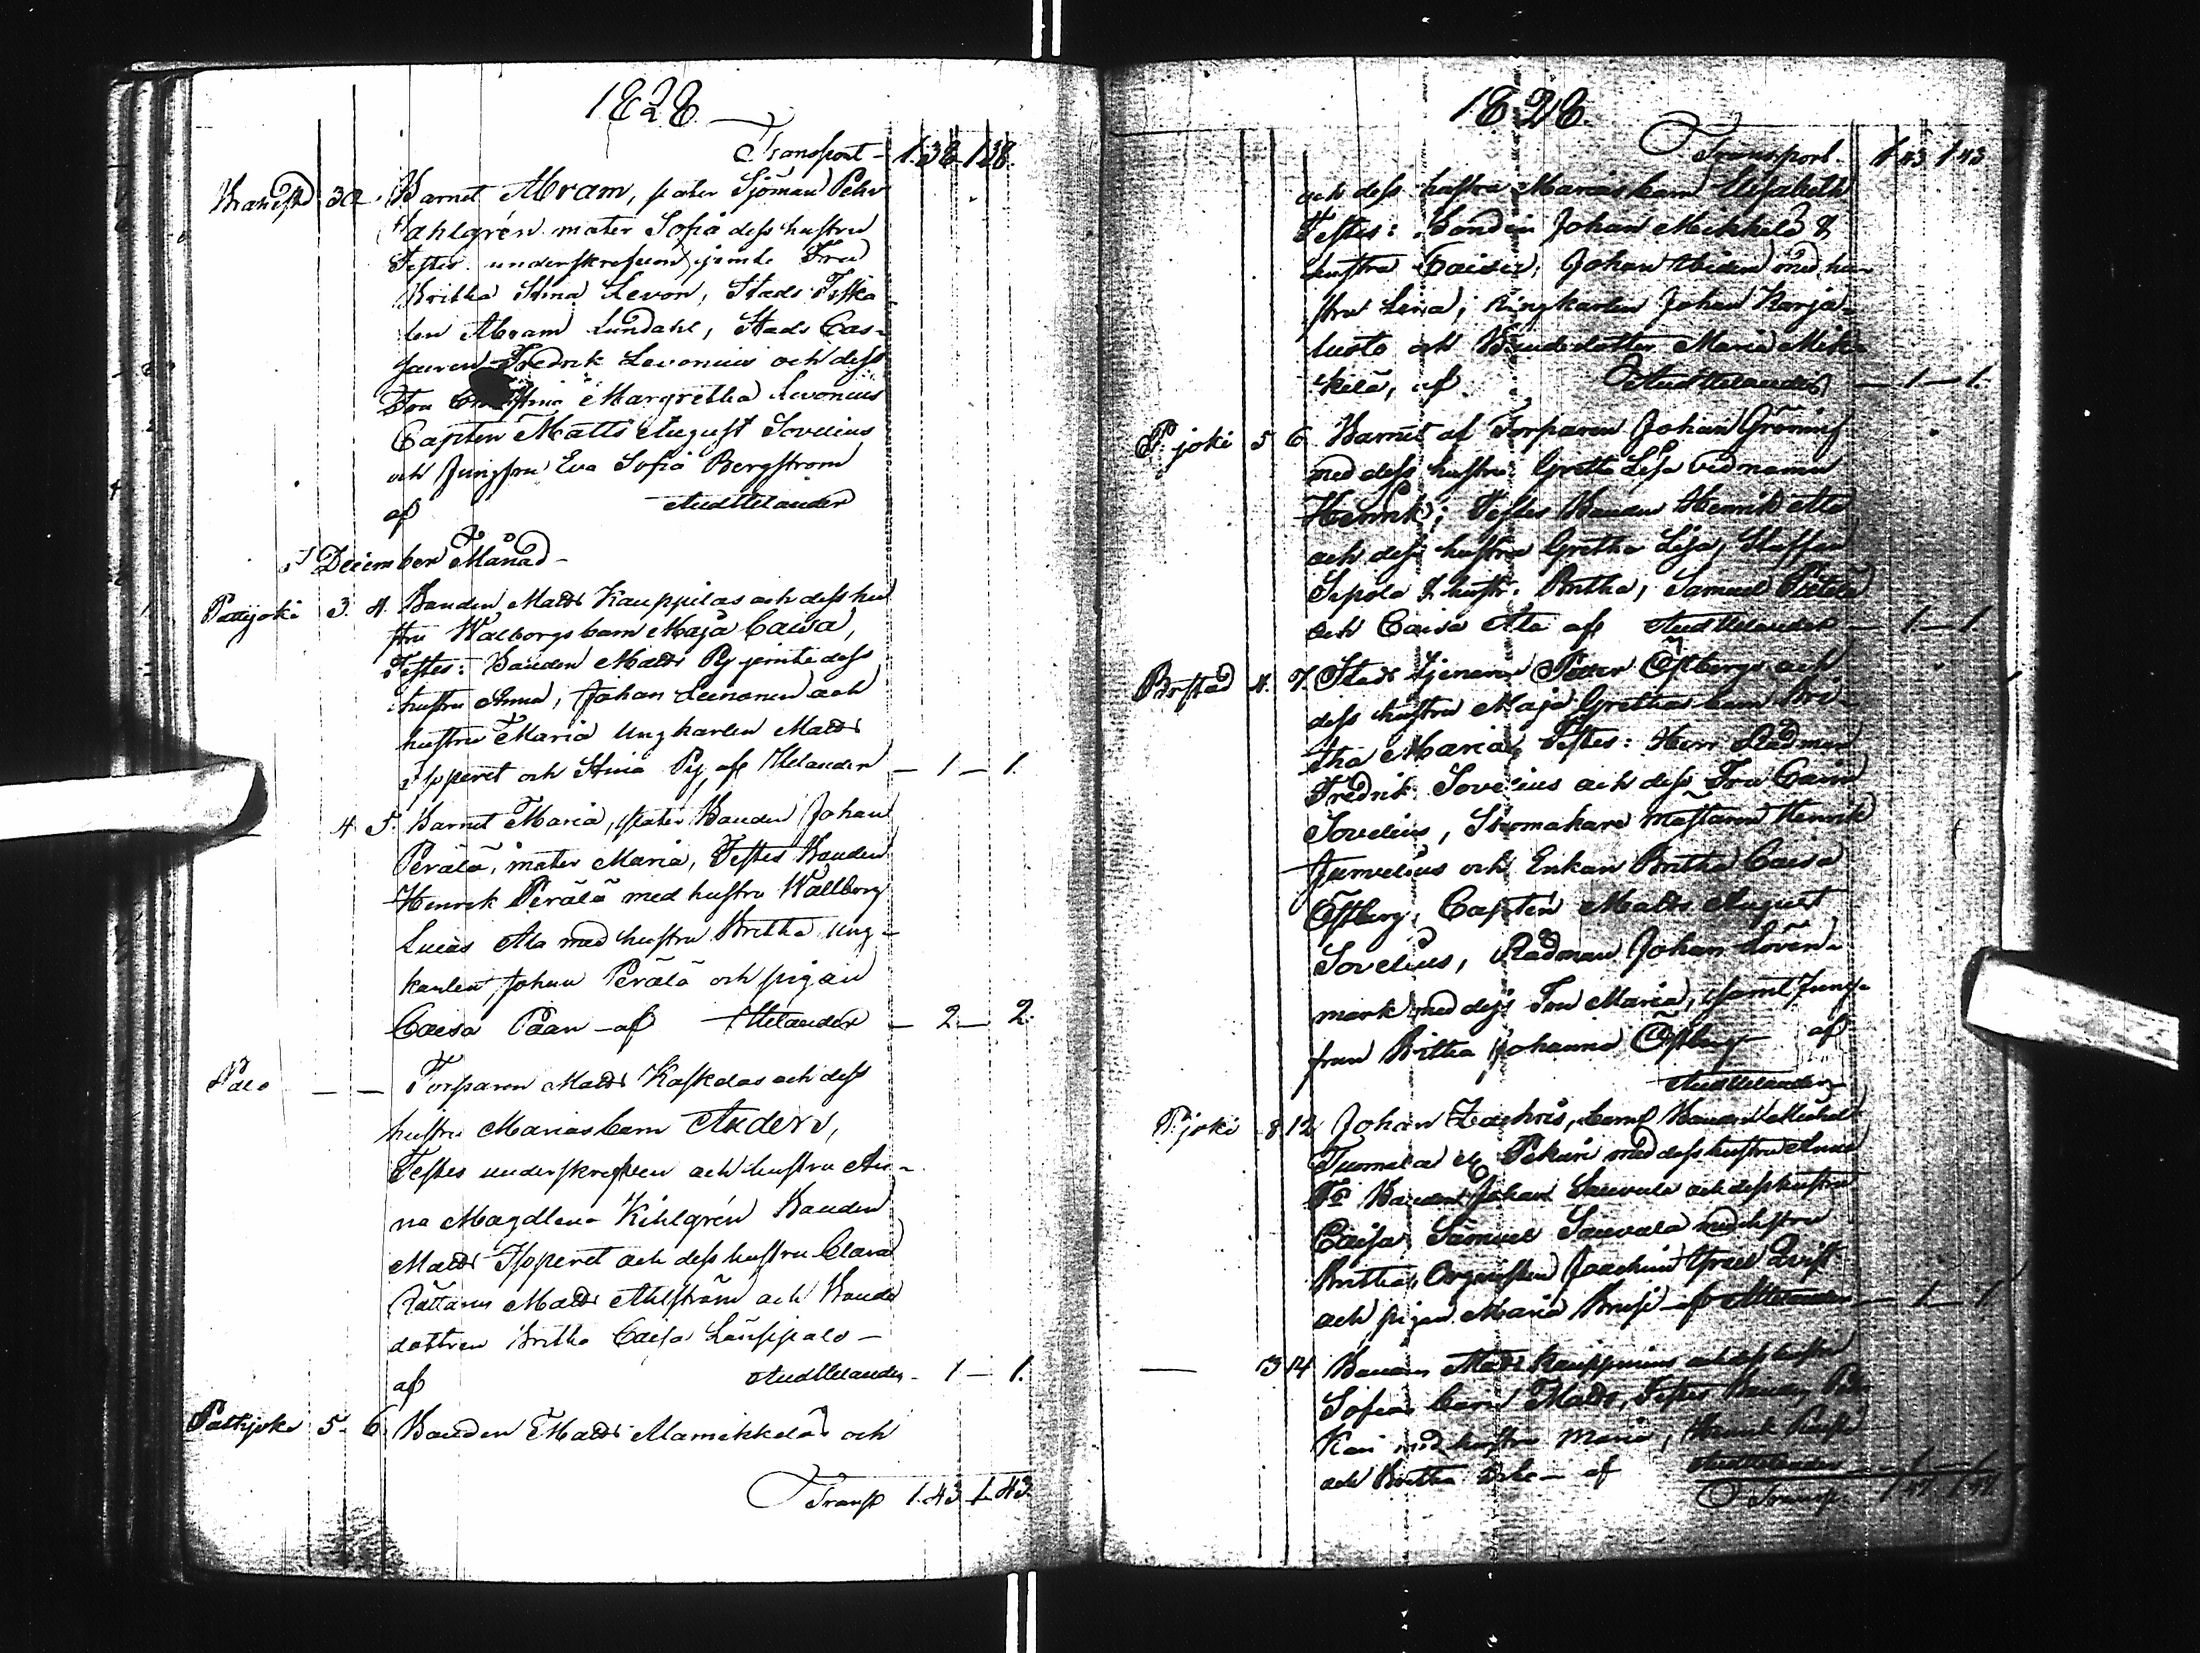 1828
Transport - 1.38 - 1.38.
Brahestd 30. Barnet Abram, pater Sjöman Pehr
Dahlgrén mater Sofia dess hustru
Testes. underskrefven jemte Fru
Britha Stina Levon, Stads Fiska-
len Abram Lundahl, Stads Cas-
Fredrik Levonius och dess
Fru Margretha Levonius
Capten Matts August Sovelius
och Jungfru Eva Sofia Bergstrom
af And Helander
I December Månad -
Pattijoki 3. 4. Bonden Matts Kauppilas och dess hu
stru Walborgs barn Maja Caisa,
Testes: Bonden Matts Py jemte dess
hustru Anna, Johan Leinonen och
hustru Maria ungkarlen Matts
Isoperet och Stina Py, af Helander - 1 - 1.
4 5. Barnet Maria, pater Bonden Johan
Perälä, mater Maria, Testes Bonden
Henrik Perälä med hustru Wallborg
Lucas Ala med hustru Britha ung-
karlen Johan Perälä och pigan
Caisa Pään - af Helander - 2 - 2.
Palo - - Torparen Matts Kaskelas och dess
hustru Marias barn Anders,
Testes underskrefven och hustru An-
na Magdlena Kihlgrén Bonden
Matts Isoperet och dess hustru Clara
Rättarn Matts Ahlström och Bonde
dottren Britha Caisa Lauppalo -
af And Helander - 1 - 1.
Pattijoki 5. 6. Bonden Matts Alamikkeläs och
Transp 1.43 1.43.
1828.
Transport. 1.43 1.43
och dess hustru Marias barn Elisabeth
Testes: Bonden Johan Mikkelä &
hustru Caisa, Johan med hu-
stru Lena; Ringkarlen Johan Karja-
luoto och Bondedottren Maria Mik-
kelä, af And Helander - 1 - 1.
P. joki 5 6 Barnet af Torparen Johan Gröning
med dess hustru Gretha Lisa vid namn
Henrik; Testes Bonden Henrik Ala
och dess hustru Gretha Lisa, Staffan
Sipola & hustr. Britha, Samuel Pietilä
och Caisa Ala af And Helander - 1 - 1
Brstad 4. 7. Stads tjenaren Petter Östbergs och
dess hustru Maja Grethas barn Bri-
tha Maria, Testes: Herr Rådman
Fredrik Sovelius och dess Fru Carin
Sovelius, Skomakare mästaren Henrik
Junnelius och Enkan Britha Caisa
Östberg, Capten Matts August
Sovelius, Rådman Johan Lören-
mark med dess Fru Maria, samt Jung-
frun Britha Johanna Östberg af
And Helander
P. joki 8 12 Johan Zachris, barn Bonden Michel
Tuomela el Pekuri med dess hustru Anna
Ts Bonden Johan Sauvola och dess hustru
Caisa, Samuel Sauvala med hustru
Britha, Organisten Joachim Israel Qvist
och pigan Maria af Helander - 1 - 1
- 13 14 Bonden Matts Kauppinens och dess hustru
Sofias barn Matts, Testes Bonden
med hustru Maria, Henrik
och Britha - af And Helander - 1 - 1
Transp. 1.47 1.47